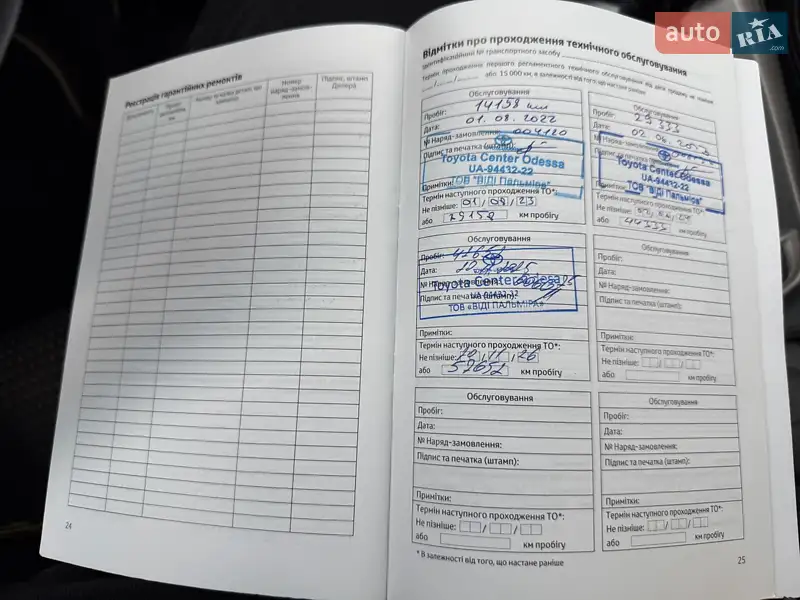 auto RIA .com
Реєстрація гарантійних ремонтів
Номер наряд-замов-лення
Підпис, штамп Дилера
24
Відмітки про проходження технічного обслуговування
Ідентифікаційний № транспортного засобу
Термін проходження першого регламентного технічного обслуговування від дати продажу не пізніше
або 15 000 км, в залежності від того, що настане раніше
Обслуговування
Пробіг: 14158 км
Дата: 01.08.2022
№ Наряд-замовлення: 004120
Підпис та печатка (штамп):
Toyota Center Odessa
UA-94432-22
ТОВ "ВІДІ Пальміра"
Примітки:
Термін наступного проходження ТО*:
Не пізніше: 01/08/23
або 29158 км пробігу
Обслуговування
Пробіг: 29333
Дата: 02.06.
№ Наряд-замовлення:
Підпис та печатка
Toyota Center Odessa
UA-94432-22
ТОВ "ВІДІ Пальміра"
Примітки:
Термін наступного проходження ТО*:
Не пізніше:
або 44333 км пробігу
Обслуговування
Пробіг:
Дата:
№ Наряд-замовлення:
Підпис та печатка (штамп):
Toyota Center Odessa
UA-94432-22
ТОВ «ВІДІ ПАЛЬМІРА»
Примітки:
Термін наступного проходження ТО*:
Не пізніше: 10/11/26
або 57652 км пробігу
Обслуговування
Пробіг:
Дата:
№ Наряд-замовлення:
Підпис та печатка (штамп):
Примітки:
Термін наступного проходження ТО*:
Не пізніше:
або км пробігу
Обслуговування
Пробіг:
Дата:
№ Наряд-замовлення:
Підпис та печатка (штамп):
Примітки:
Термін наступного проходження ТО*:
Не пізніше:
або км пробігу
Обслуговування
Пробіг:
Дата:
№ Наряд-замовлення:
Підпис та печатка (штамп):
Примітки:
Термін наступного проходження ТО*:
Не пізніше:
або км пробігу
* В залежності від того, що настане раніше
25